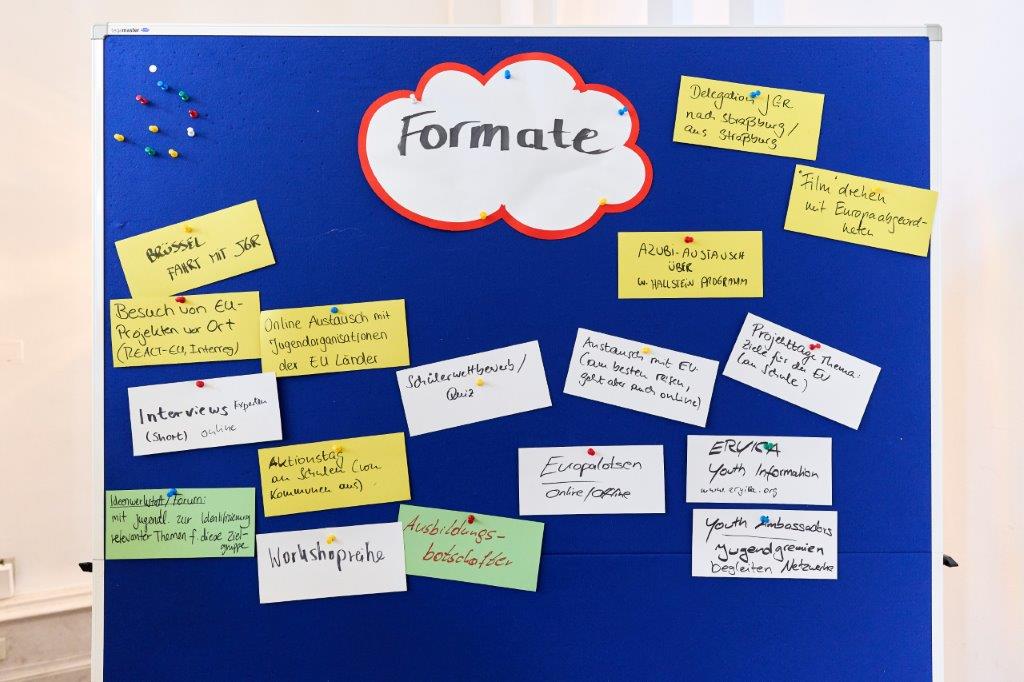 legamaster
Formate
Delegation JGR
nach Straßburg/
aus Straßburg
"Film" drehen
mit Europaabgeord-
neten
BRÜSSEL
FAHRT MIT JGR
AZUBI-AUSTAUSCH
ÜBER
W. HALLSTEIN PROGRAMM
Besuch von EU-
Projekten vor Ort
(REACT-EU, Interreg)
Online Austausch mit
Jugendorganisationen
der EU Länder
Schülerwettbewerb/
Quiz
Austausch mit EU
(am besten reisen,
geht aber auch online)
Projekttage Thema:
Ziele für die EU
(an Schule)
Interviews Experten
(Short) online
Aktionstag
an Schulen (von
Kommunen aus)
Europalotsen
online/offline
ERYICA
Youth Information
www.eryica.org
Ideenwerkstatt/Forum:
mit Jugendl. zur Identifizierung
relevanter Themen f. diese Ziel-
gruppe
Workshopreihe
Ausbildungs-
botschafter
Youth Ambassadors
Jugendgremien
begleiten Netzwerke